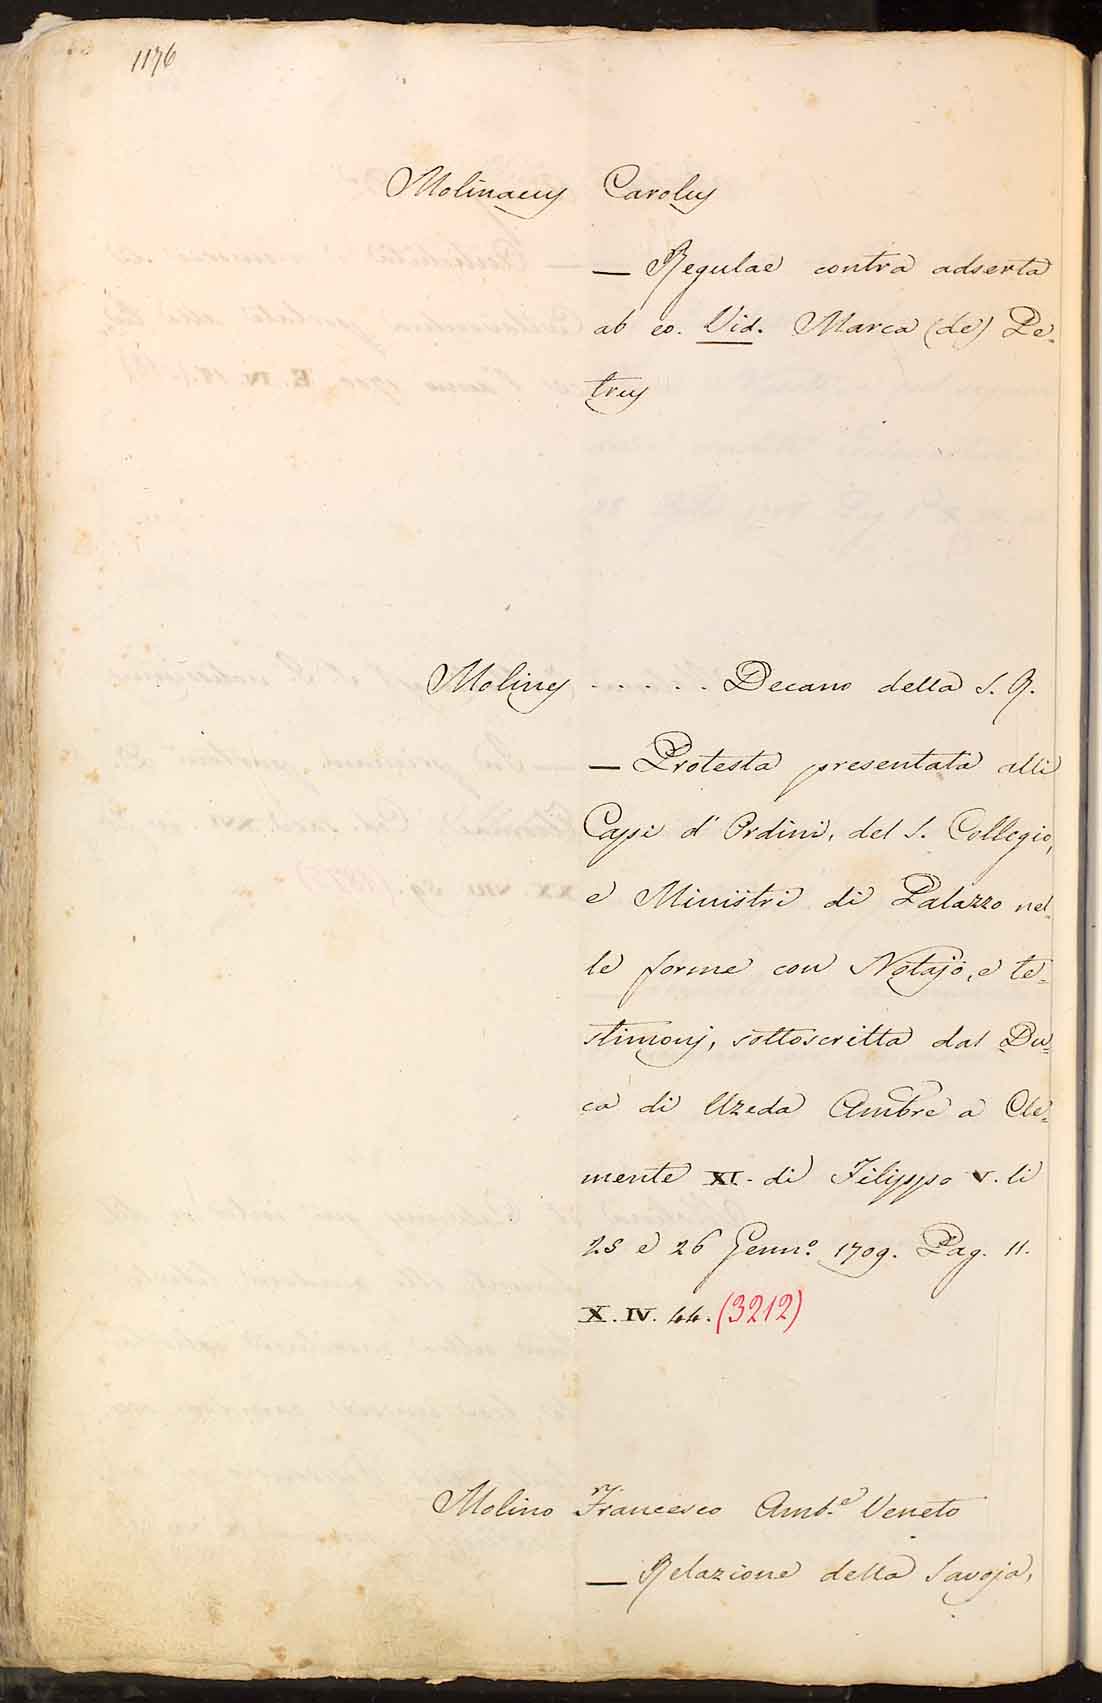 1176
Molinaeus Carolus
— Regulae contra adserta
ab eo. Vid. Marca (de) Pe-
trus
Molines . . . . . Decano della S. R.
— Protesta presentata alli
Capi d'Ordini, del S. Collegio,
e Ministri di Palazzo nel-
le forme con Notajo, e te-
stimonj, sottoscritta dal Du-
ca di Uzeda Ambre a Cle-
mente XI. di Filippo V. li
25 e 26 Genn.º 1709. Pag. 11.
X. IV. 44. (3212)
Molino Francesco Amb.e Veneto
— Relazione della Savoja,